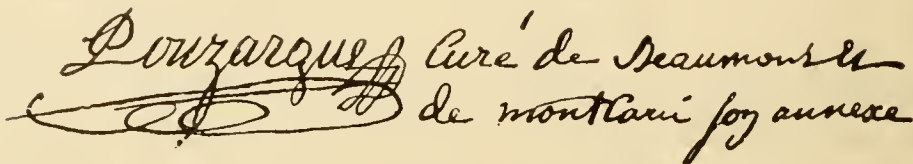 Pouzargues Curé de Beaumont et
de montlari son annexe